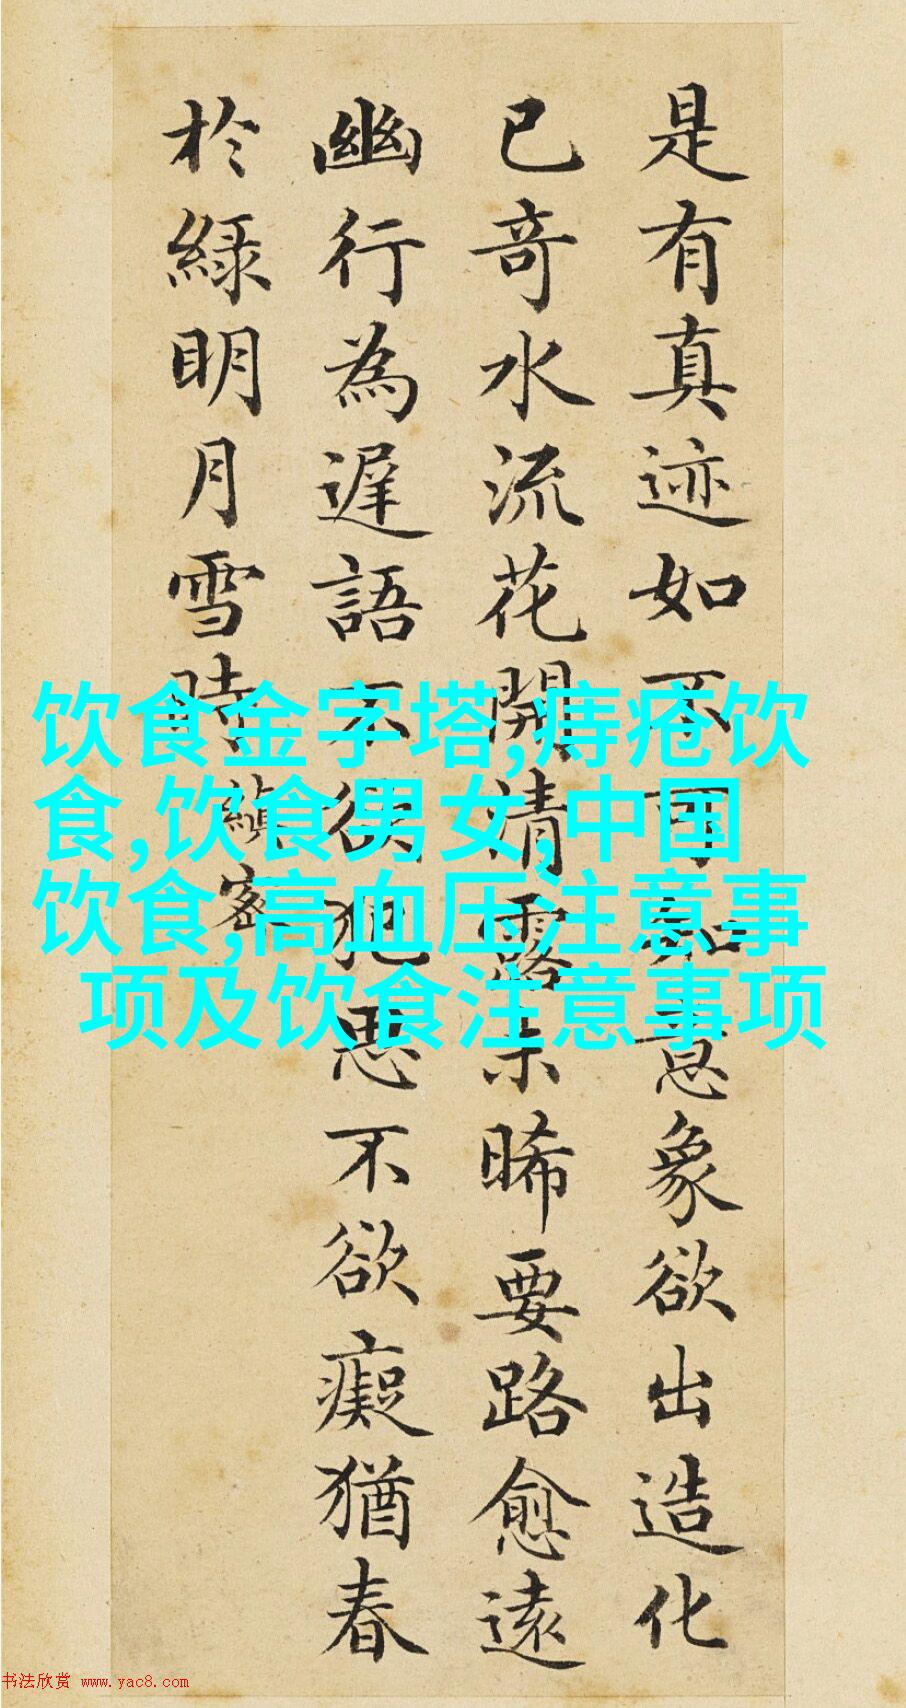 是有真迹如不可知意象欲出造化
已奇水流花開清露未晞要路愈遠
幽行為遲語不欲犯思不欲癡猶春
於綠明月雪時
縝密
饮食金字塔,痔疮饮
食,饮食男女,中国
饮食,高血压注意事
项及饮食注意事项
书法欣赏 www.yac8.com